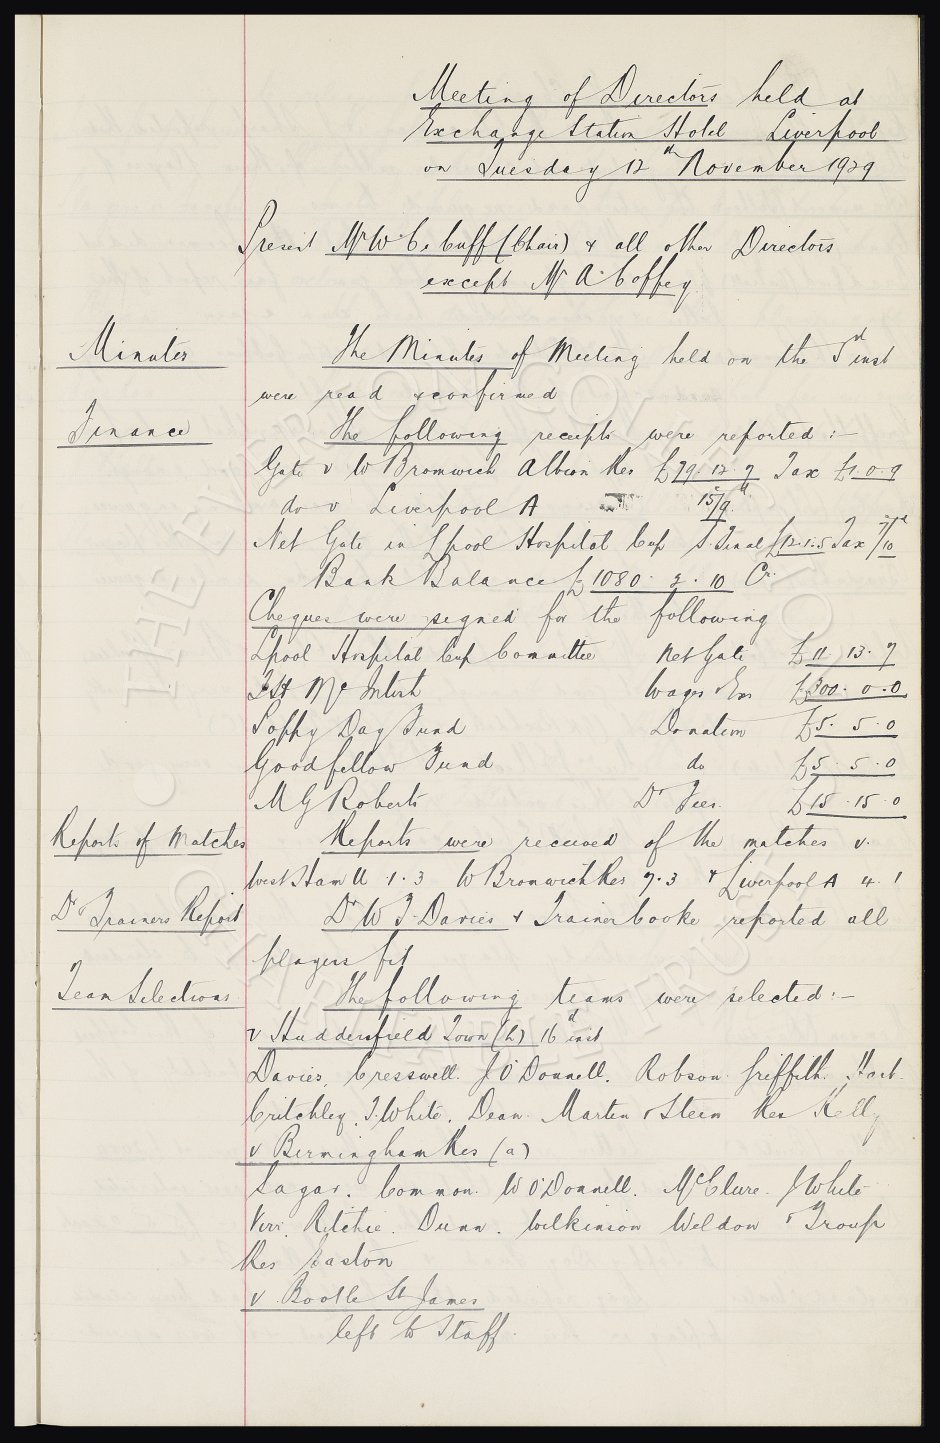 Meeting of Directors held at
Exchange Station Hotel Liverpool
on Tuesday 12th November 1929
Present Mr W. C. Cuff (Chair) & all other Directors
except Mr A. Coffey
Minutes The Minutes of Meeting held on the 5th inst
were read & confirmed
Finance The following receipts were reported :-
Gate v W Bromwich Albion Res £79. 12. 7 Tax £1. 0. 9
do v Liverpool A 15/9d
Net Gate in L'pool Hospital Cup S. Final £12. 1. 5 Tax 7/10d
Bank Balance £1080. 2. 10 Cr.
Cheques were signed for the following
L'pool Hospital Cup Committee Net Gate £11. 13. 7
T H Mc Intosh Wages & Exs £300. 0. 0
Poppy Day Fund Donation £5. 5. 0
Goodfellow Fund do £5. 5. 0
M G Roberts Dr Fees. £15. 15. 0
Reports of Matches Reports were received of the matches v.
West Ham U 1. 3 W Bromwich Res 7. 3 & Liverpool A 4. 1
Dr & Trainers Report Dr W J. Davies & Trainer Cooke reported all
players fit
Team Selections The following teams were selected :-
v Huddersfield Town (h) 16th inst
Davies, Cresswell. J O'Donnell. Robson. Griffith. Hart.
Critchley, T. White, Dean. Martin & Stein Res Kelly
v Birmingham Res (a)
Sagar. Common. W O'Donnell. McClure. J White
Virr. Ritchie. Dunn. Wilkinson Weldon & Troup
Res Easton
v. Bootle St James
left to Staff.
THE EVERTON COLLECTION
CHARITABLE TRUST